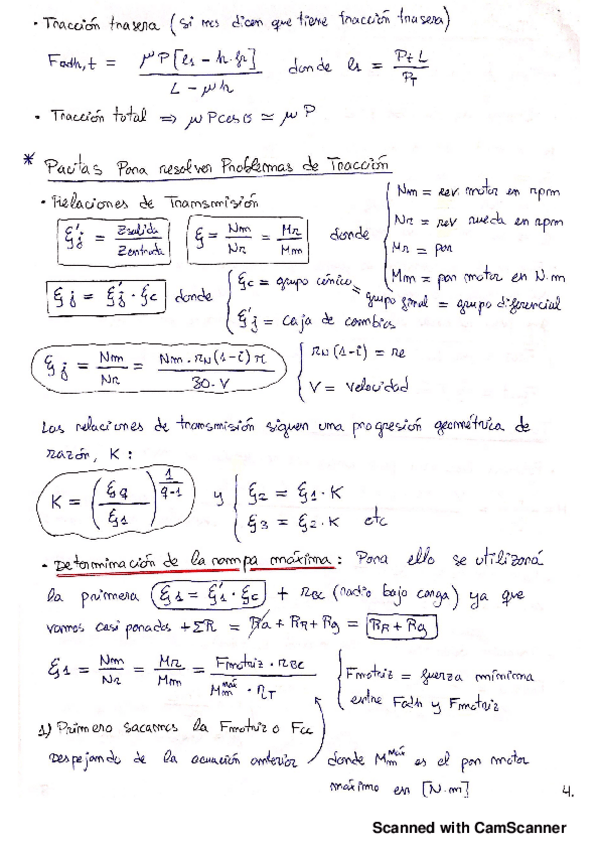 • Tracción trasera (si nos dicen que tiene tracción trasera)
Fadh,t = μP[l₁ - h·fr] / L - μh donde l₁ = Pt L / PT
• Tracción total ⇒ μPcosθ ≃ μP
* Pautas Para resolver Problemas de Tracción
• Relaciones de Transmisión
ξ'j = Zsalida / Zentrada ξ = Nm / Nr = Mr / Mm donde
Nm = rev. motor en rpm
Nr = rev rueda en rpm
Mr = par
Mm = par motor en N·m
ξj = ξ'j · ξc donde
ξc = grupo cónico = grupo final = grupo diferencial
ξ'j = caja de cambios
ξj = Nm / Nr = Nm · rN(1-i) π / 30·V
rN(1-i) = re
V = velocidad
Las relaciones de transmisión siguen una progresión geométrica de
razón, K:
K = (ξq / ξ1)^(1 / q-1) y
ξ2 = ξ1·K
ξ3 = ξ2·K etc
• Determinación de la rampa máxima: Para ello se utilizará
la primera ξ1 = ξ'1 · ξc + rBC (radio bajo carga) ya que
vamos casi parados + ΣR = Ra + RR + Rg = RR + Rg
ξ1 = Nm / Nr = Mr / Mm = Fmotriz · rBC / Mm^máx · ηT
Fmotriz = fuerza mínima
entre Fadh y Fmotriz
1) Primero sacamos la Fmotriz o
Despejando de la ecuación anterior
donde Mm^máx es el par motor
máximo en [N.m]
4.
Scanned with CamScanner